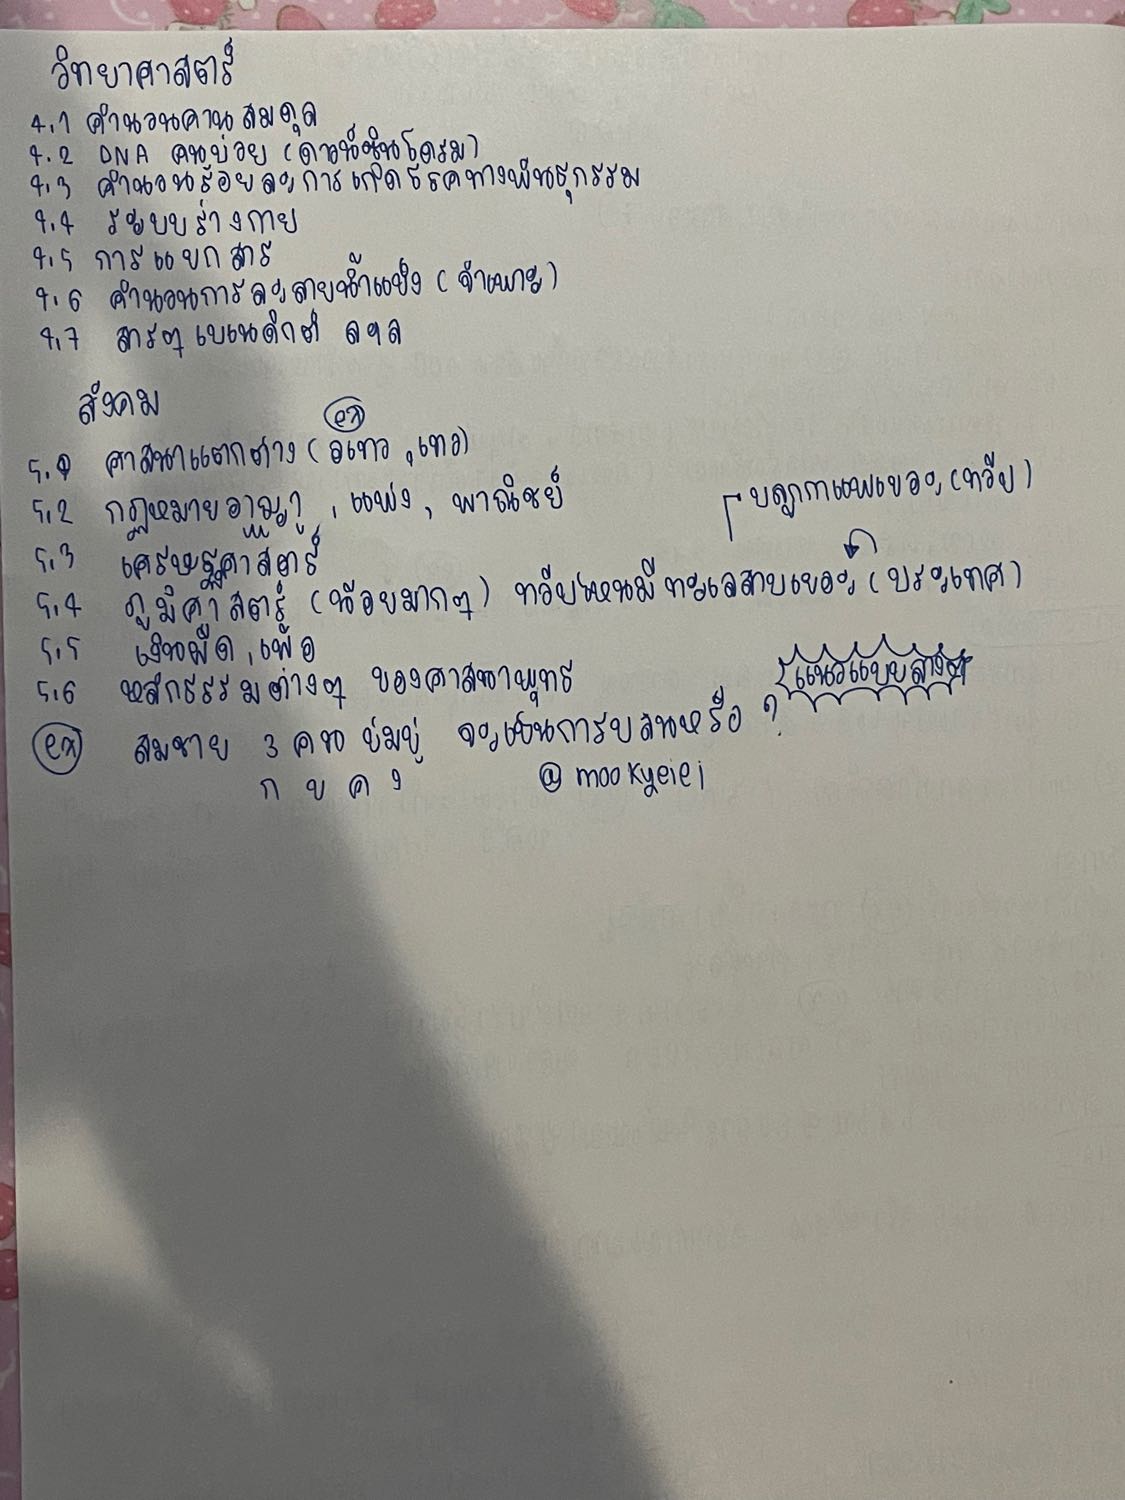 วิทยาศาสตร์
4.1 คำนวนคานสมดุล
4.2 DNA คนป่วย (ดาวน์ซินโดรม)
4.3 คำนวนร้อยละการเกิดโรคทางพันธุกรรม
4.4 ระบบร่างกาย
4.5 การแยกสาร
4.6 คำนวนการละลายน้ำแข็ง (จำเพาะ)
4.7 สารๆ เบเนดิกต์ ลฯล
สังคม
ex
5.1 ศาสนาแตกต่าง (อเทว , เทว)
5.2 กฎหมายอาญา , แพ่ง , พาณิชย์
บลูกาแพเยอะ (ทวีป)
5.3 เศรษฐศาสตร์
5.4 ภูมิศาสตร์ (น้อยมากๆ) ทวีปไหนมีทะเลสาบเยอะ (ประเทศ)
5.5 เงินฝืด , เฟ้อ
5.6 หลักธรรมต่างๆ ของศาสนาพุทธ
แนวแบบสางๆ
ex สมชาย 3 คน ข่มขู่ จะเป็นการปล้นหรือ ?
ก ข ค ง @mookyeiei